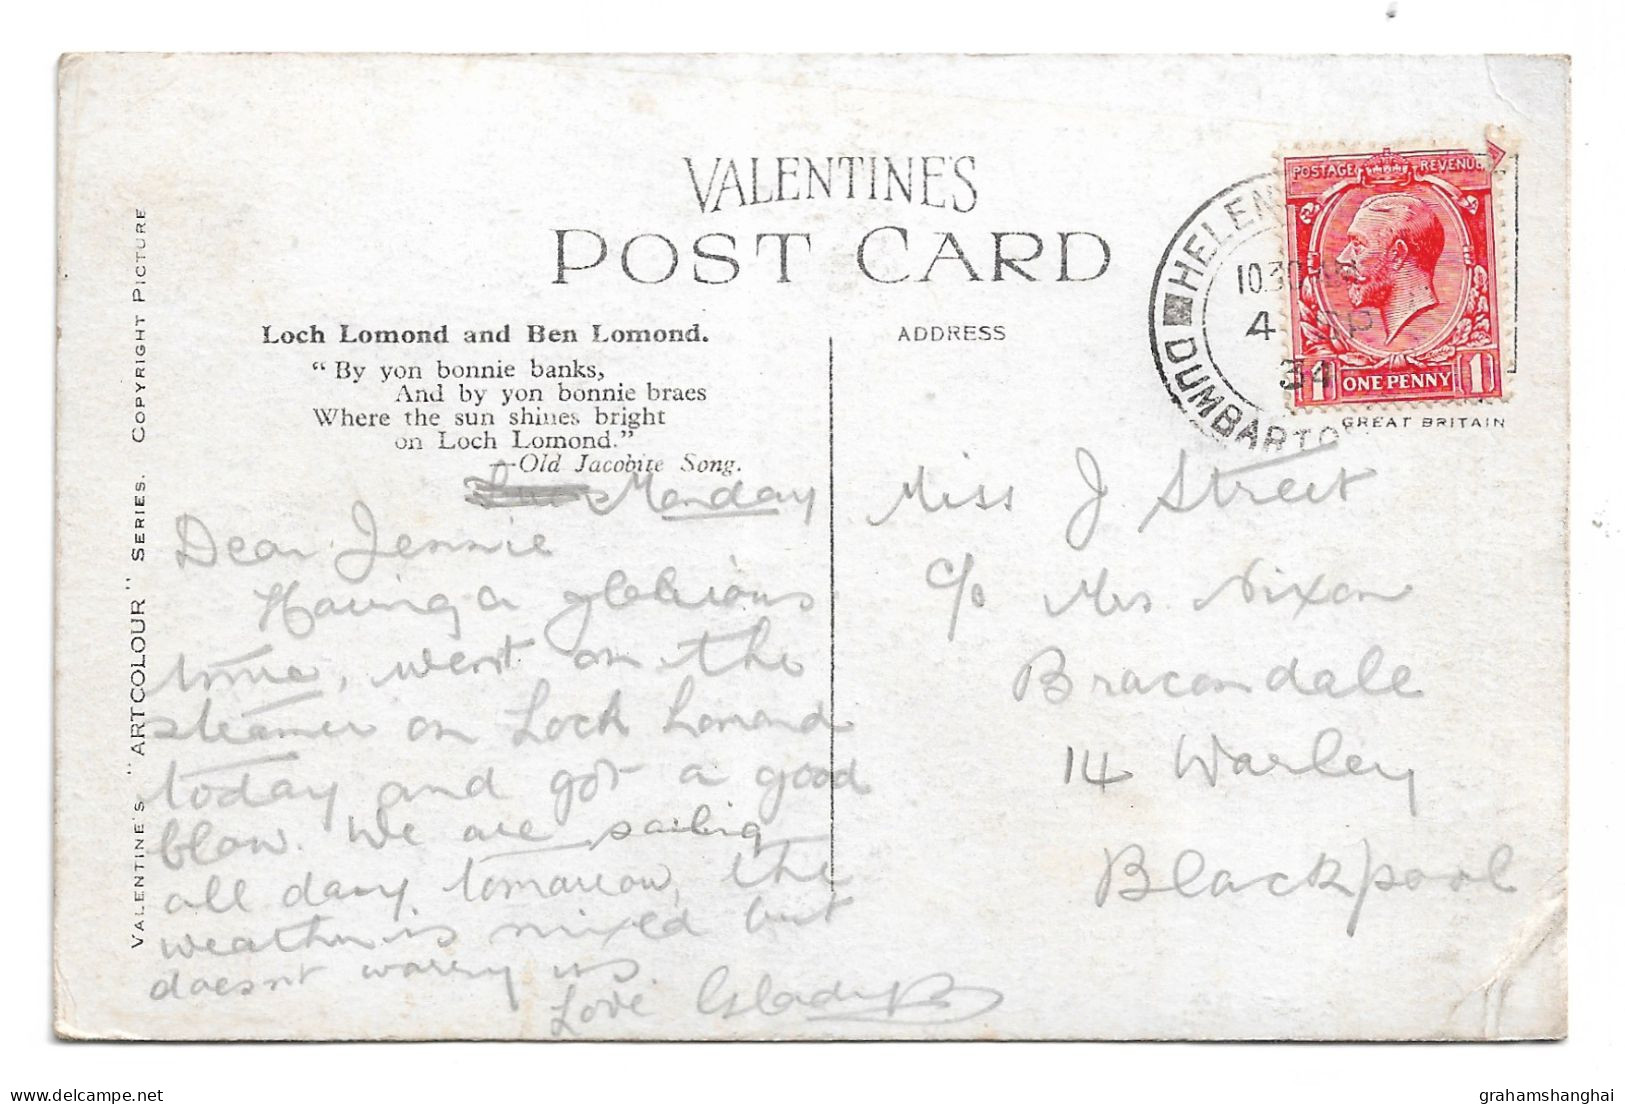 VALENTINE'S
POST CARD
VALENTINE'S "ARTCOLOUR" SERIES. COPYRIGHT PICTURE
Loch Lomond and Ben Lomond.
"By yon bonnie banks,
And by yon bonnie braes
Where the sun shines bright
on Loch Lomond."
—Old Jacobite Song.
Monday
Dear Jennie
Having a glorious
time, went on the
steamer on Loch Lomond
today and got a good
blow. We are sailing
all day tomorrow, the
weather is mixed but
doesnt worry us.
Love Gladys
ADDRESS
POSTAGE REVENUE
ONE PENNY
1 1
GREAT BRITAIN
HELEN
10.30 AM
4 SP
34
DUMBARTO
Miss J Street
c/o Mrs Nixon
Bracondale
14 Warley
Blackpool
grahamshanghai